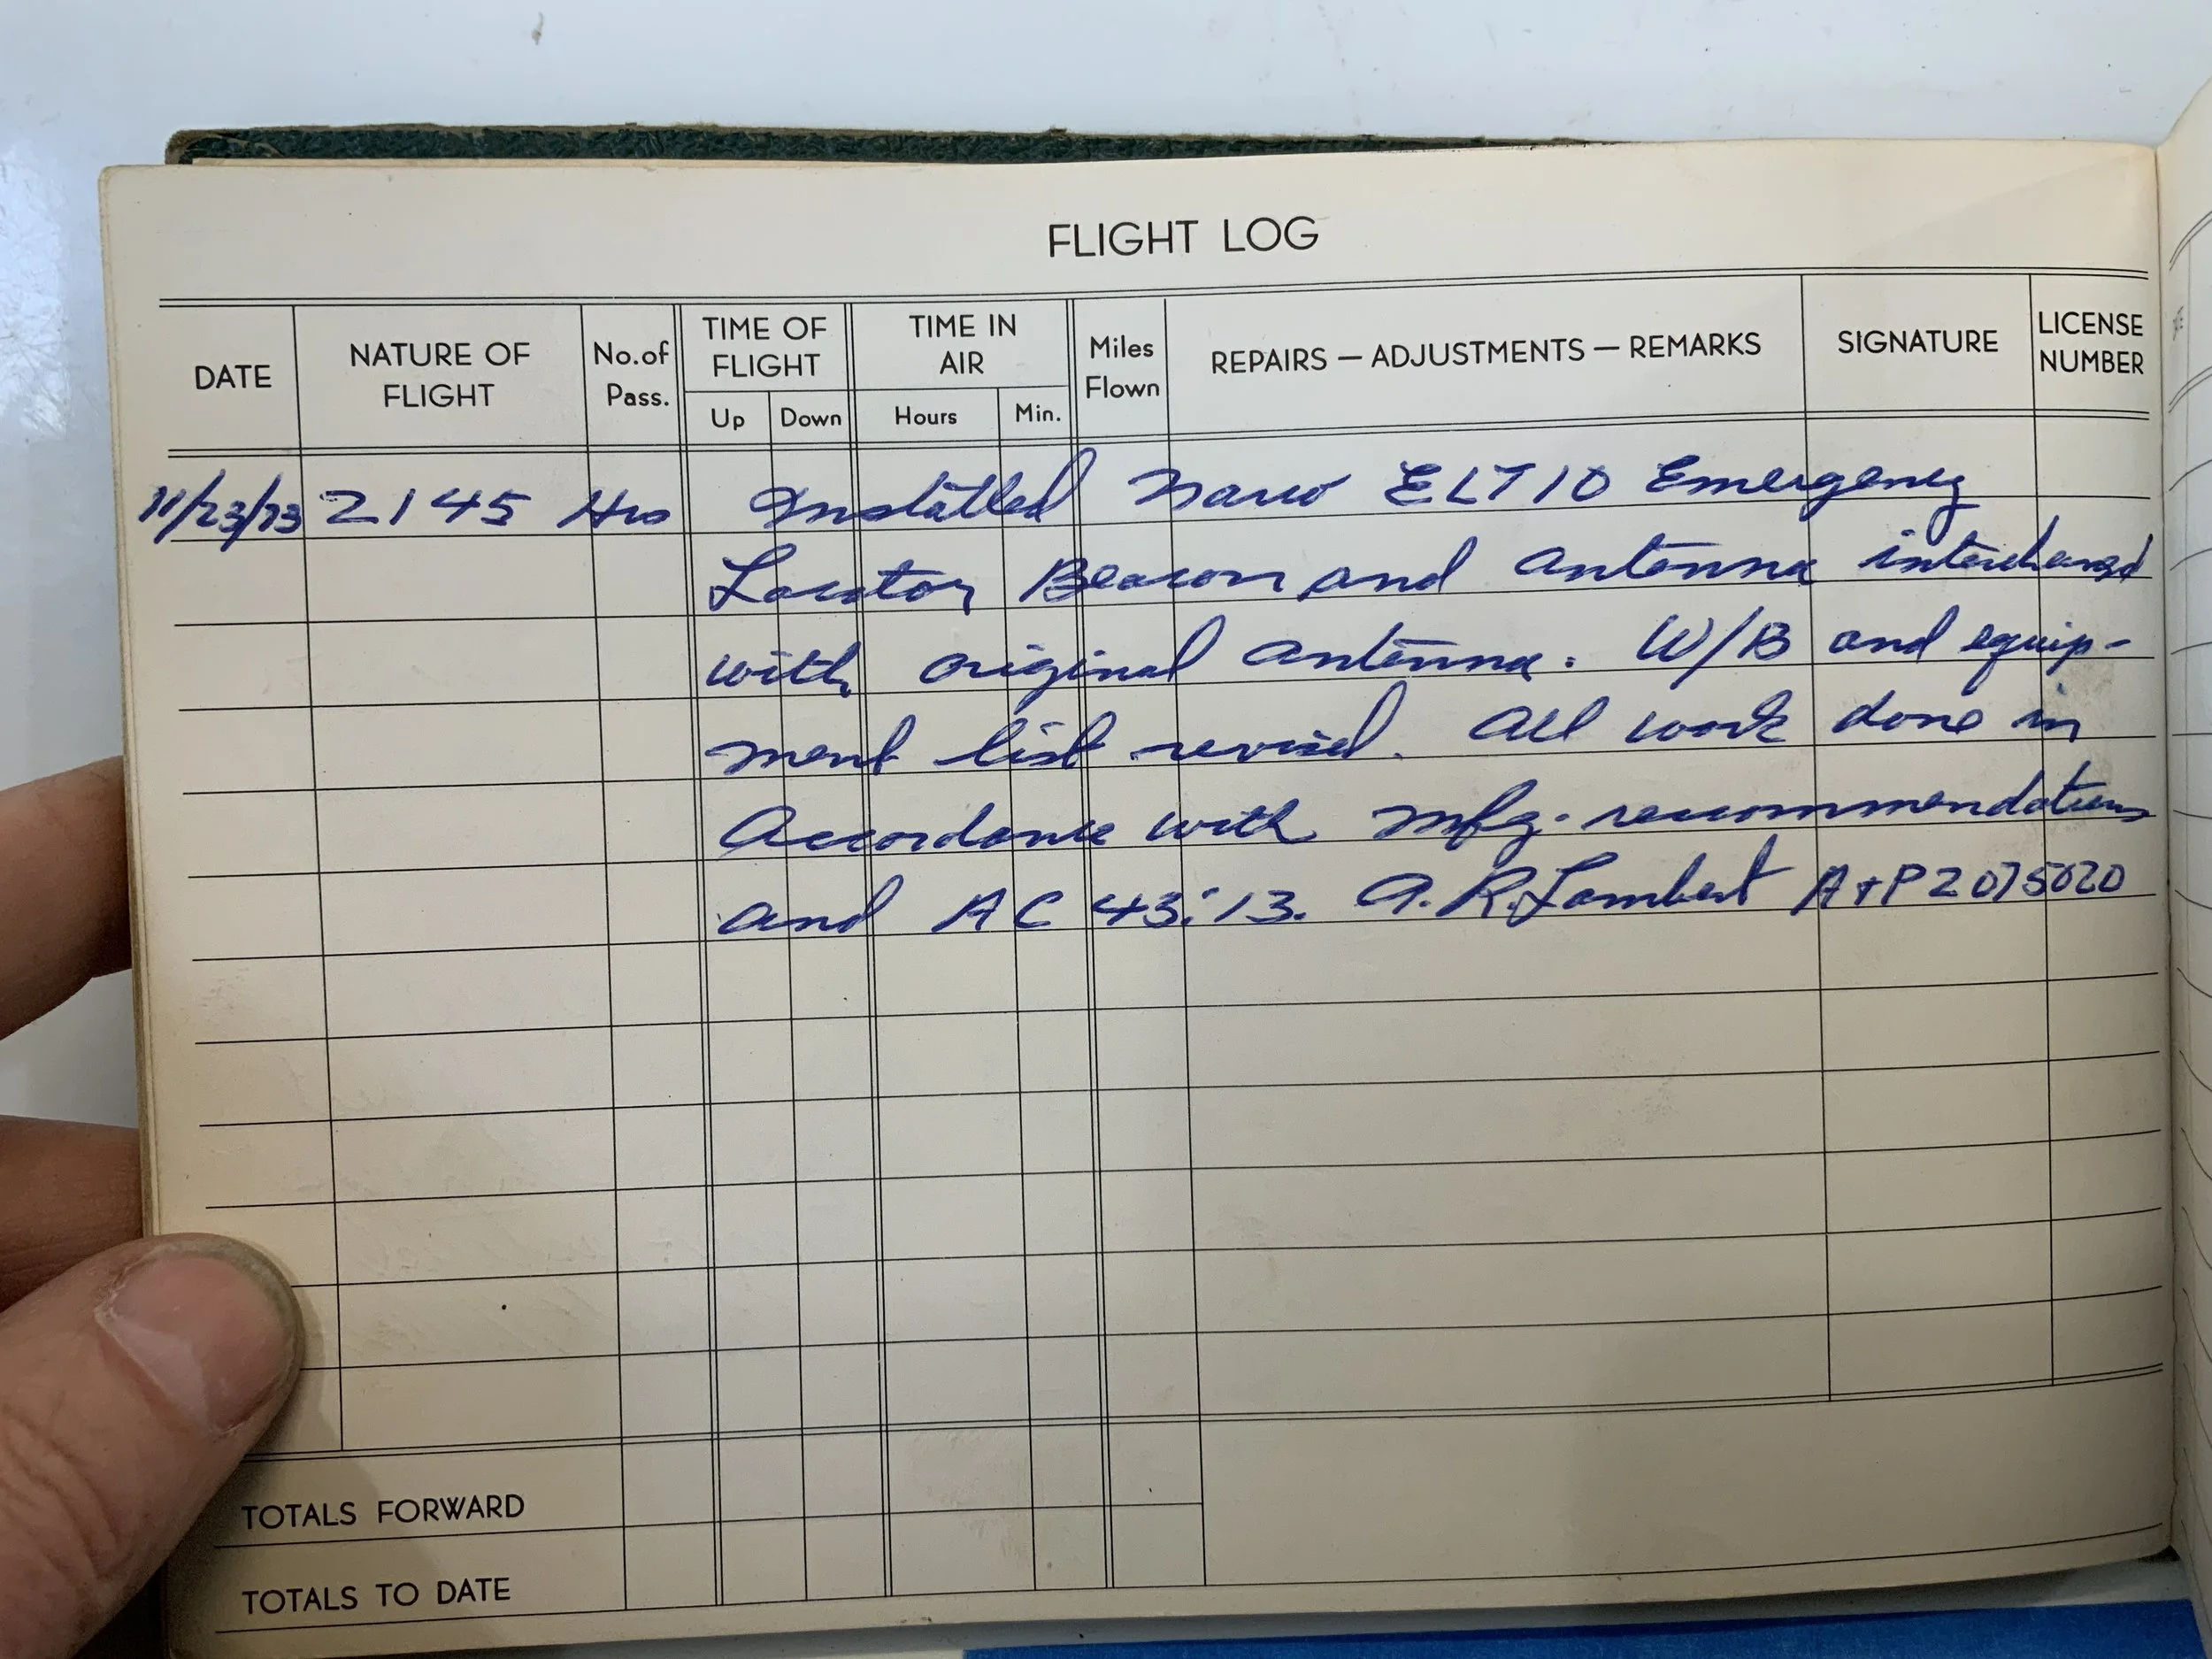 FLIGHT LOG
DATE NATURE OF FLIGHT No. of Pass. TIME OF FLIGHT Up Down TIME IN AIR Hours Min. Miles Flown REPAIRS — ADJUSTMENTS — REMARKS SIGNATURE LICENSE NUMBER
11/23/73 2145 Hrs Installed Narco ELT10 Emergency
Locator Beacon and antenna interchanged
with original antenna. W/B and equip-
ment list revised. All work done in
Accordance with mfg. recommendations
and AC 43:13. A.R. Lambert A+P 2075020
TOTALS FORWARD
TOTALS TO DATE